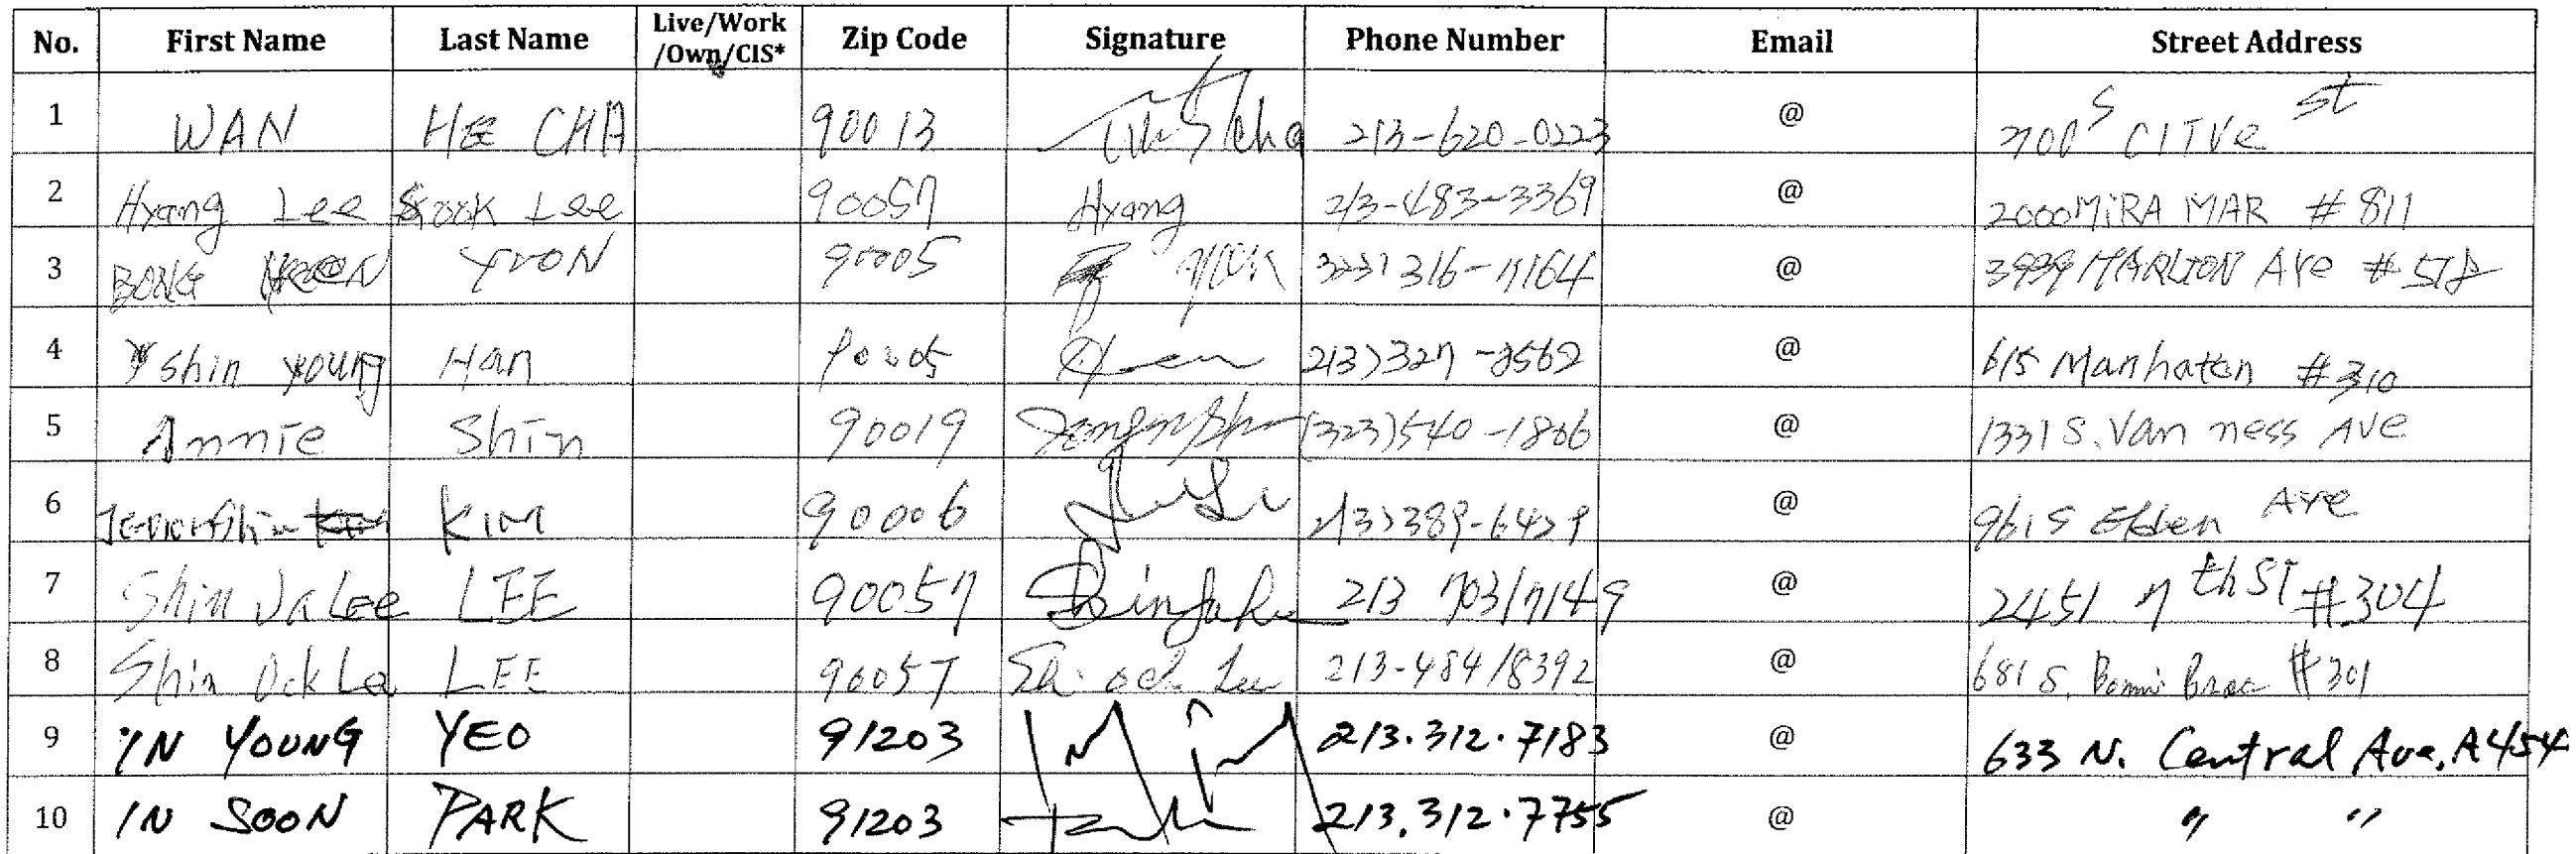 No. First Name Last Name Live/Work /Own/CIS* Zip Code Signature Phone Number Email Street Address
1 WAN HEE CHA 90013 213-620-0223 @ S CITVe st
2 Hyang Lee Sook Lee 90057 Hyang 213-483-3369 @ 2000 MiRA MAR # 811
3 BONG YOON 90005 323) 316-7164 @ 3939 MARLTON AVe
4 Shin young Han 90005 213) 327-2562 @ 615 Manhatten #310
5 Annie Shin 90019 (323) 540-1806 @ 1331 S. Van ness AVe
6 KIM 90006 213) 389-6429 @ 961 S Ave
7 Shin Ja Lee LEE 90057 213 703/7149 @ 2451 7th ST #304
8 Shin Ock Le LEE 90057 213-484/8392 @ 681 S. Brae #301
9 IN YOUNG YEO 91203 213.312.7183 @ 633 N. Central Ave. A454
10 IN SOON PARK 91203 213.312.7755 @ " "